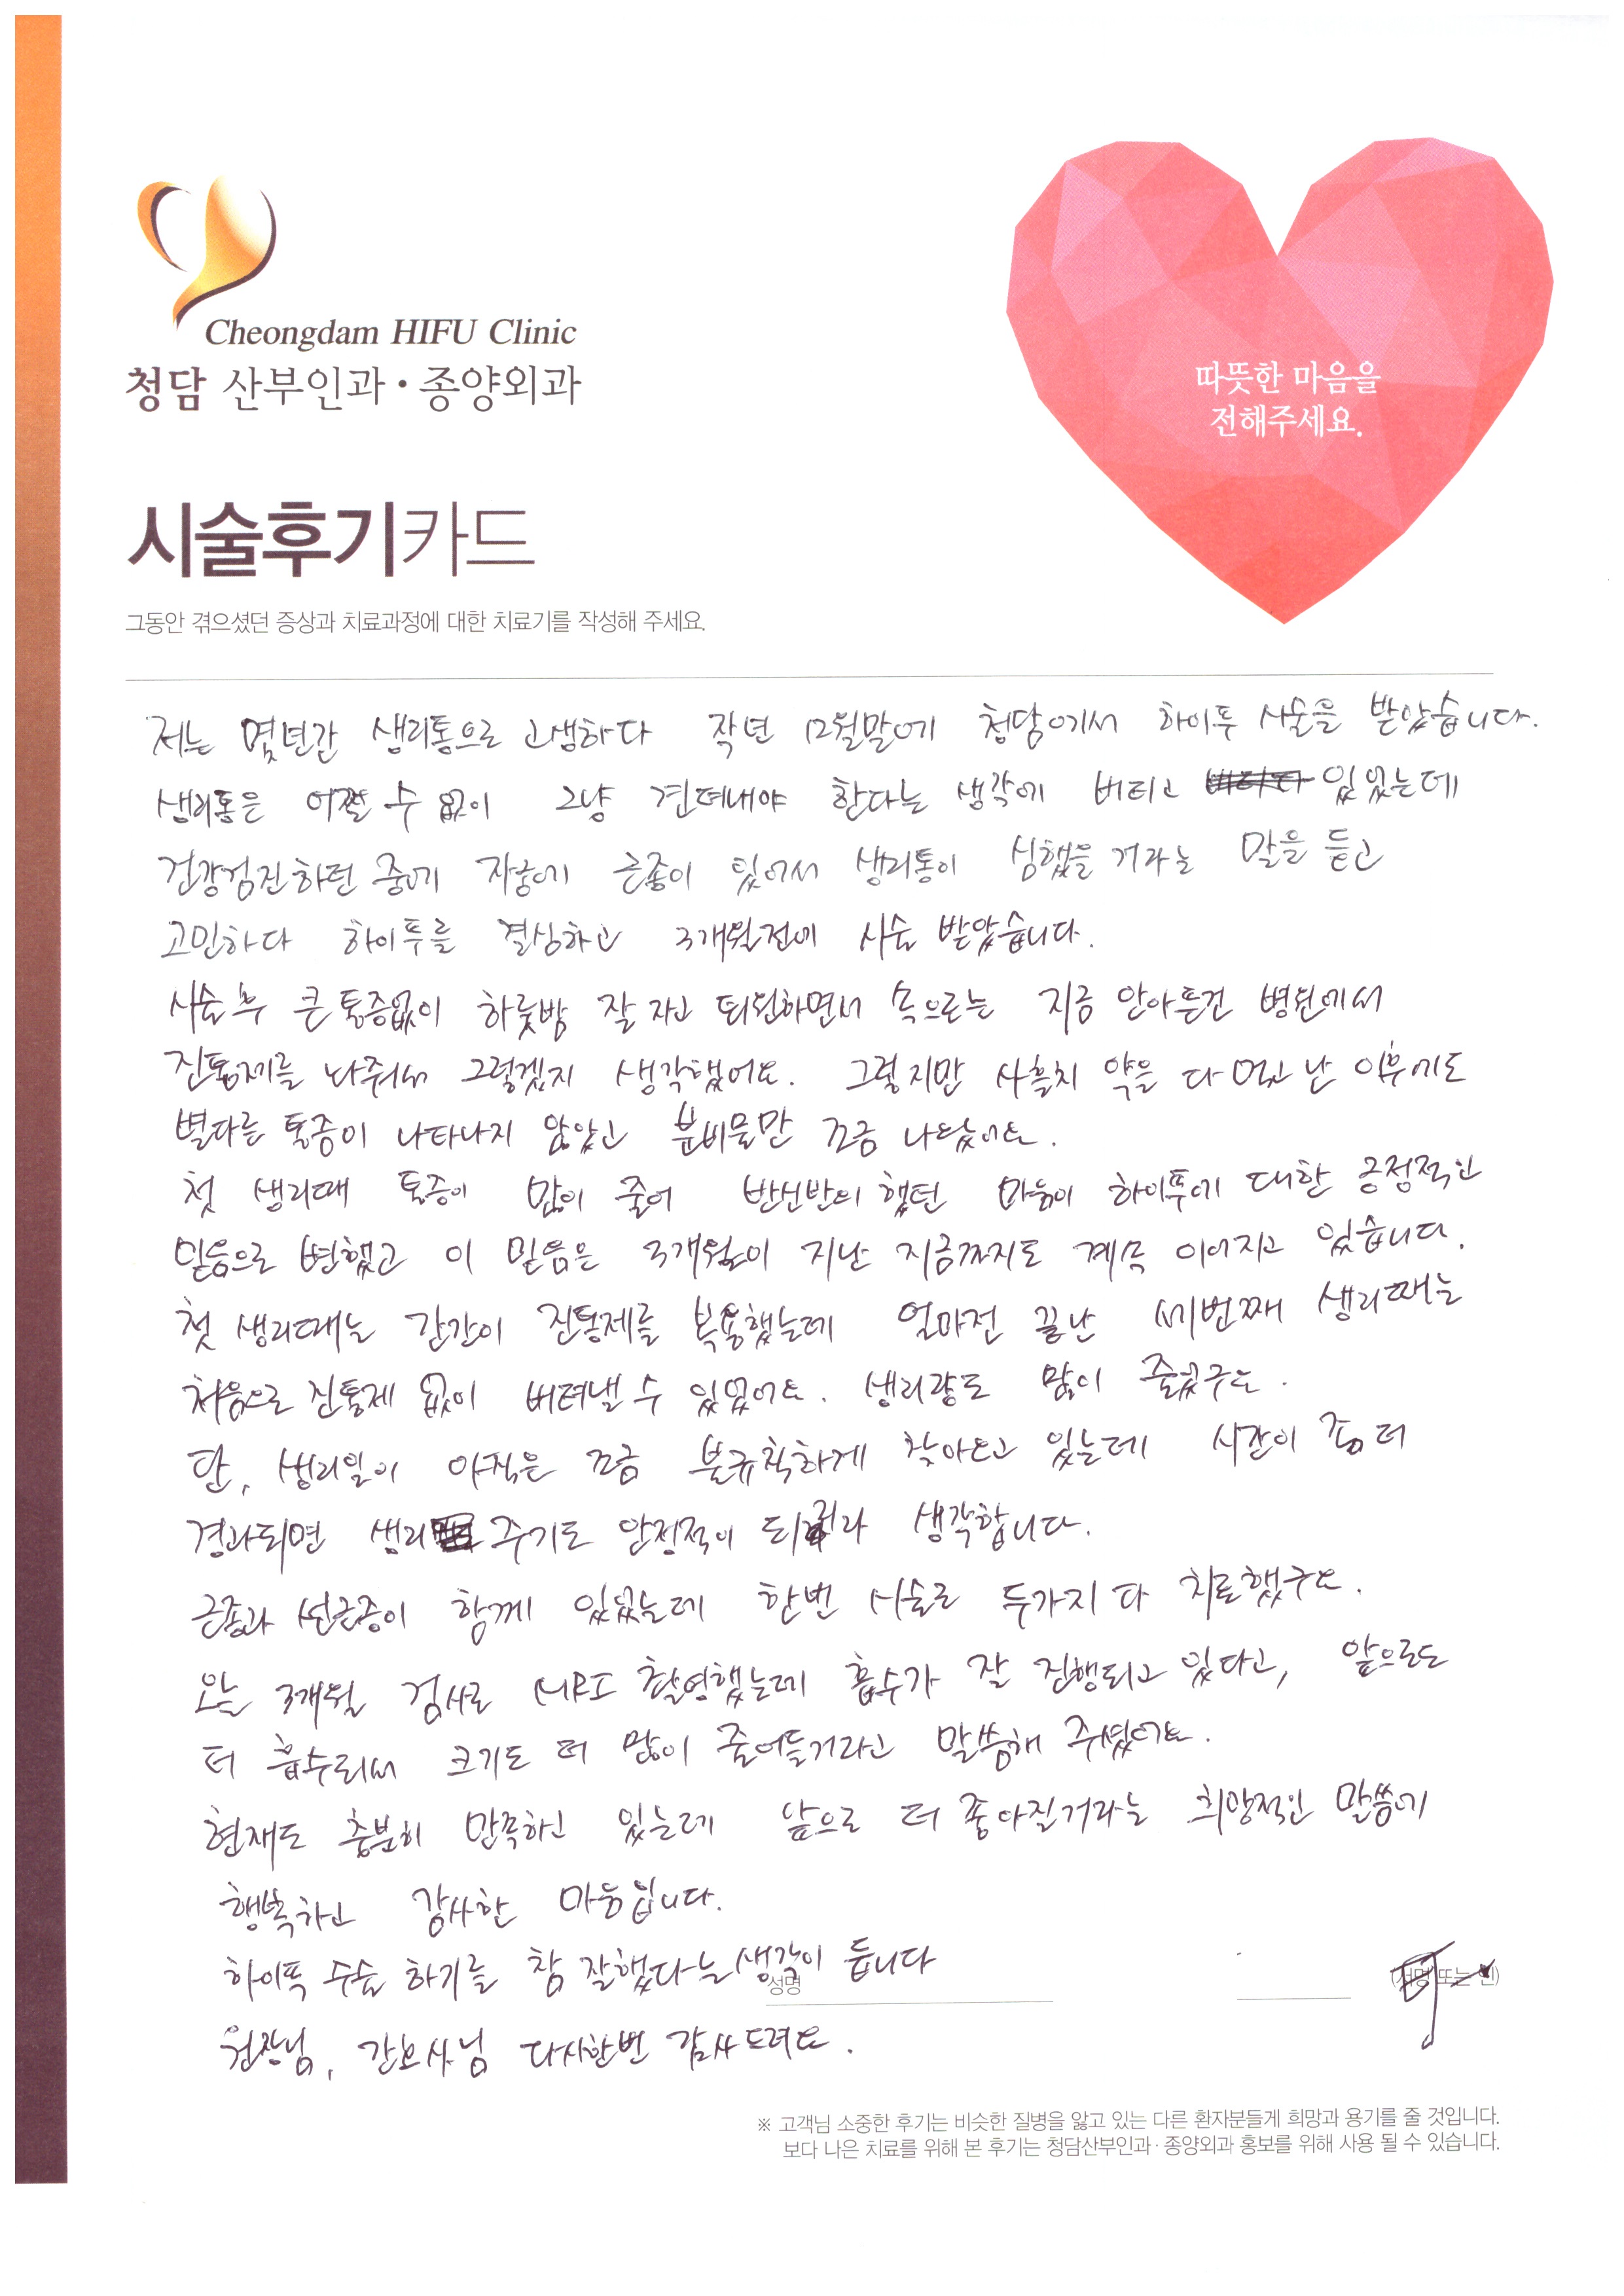 Cheongdam HIFU Clinic
청담 산부인과·종양외과
따뜻한 마음을
전해주세요.
시술후기카드
그동안 겪으셨던 증상과 치료과정에 대한 치료기를 작성해 주세요.
저는 몇년간 생리통으로 고생하다 작년 12월말에 청담에서 하이푸 시술을 받았습니다.
생리통은 어쩔 수 없이 그냥 견뎌내야 한다는 생각에 버티고 있었는데
건강검진하던 중에 자궁에 근종이 있어서 생리통이 심했을 거라는 말을 듣고
고민하다 하이푸를 결심하고 3개월전에 시술 받았습니다.
시술 후 큰 통증없이 하룻밤 잘 자고 퇴원하면서 속으로는 지금 안아픈건 병원에서
진통제를 놔줘서 그렇겠지 생각했어요. 그렇지만 사흘치 약을 다 먹고 난 이후에도
별다른 통증이 나타나지 않았고 분비물만 조금 나왔어요.
첫 생리때 통증이 많이 줄어 반신반의 했던 마음이 하이푸에 대한 긍정적인
믿음으로 변했고 이 믿음은 3개월이 지난 지금까지도 계속 이어지고 있습니다.
첫 생리때는 간간이 진통제를 복용했는데 얼마전 끝난 세번째 생리때는
처음으로 진통제 없이 버텨낼 수 있었어요. 생리량도 많이 줄었구요.
단, 생리일이 아직은 조금 불규칙하게 찾아오고 있는데 시간이 좀 더
경과되면 생리 주기도 안정적이 되리라 생각합니다.
근종과 선근증이 함께 있었는데 한번 시술로 두가지 다 치료했구요.
오늘 3개월 검사로 MRI 촬영했는데 흡수가 잘 진행되고 있다고, 앞으로도
더 흡수되서 크기도 더 많이 줄어들거라고 말씀해 주셨어요.
현재도 충분히 만족하고 있는데 앞으로 더 좋아질거라는 희망적인 말씀에
행복하고 감사한 마음입니다.
하이푸 수술 하기를 참 잘했다는 생각이 듭니다
성명 (서명 또는 인)
원장님, 간호사님 다시한번 감사드려요.
※ 고객님 소중한 후기는 비슷한 질병을 앓고 있는 다른 환자분들게 희망과 용기를 줄 것입니다.
보다 나은 치료를 위해 본 후기는 청담산부인과·종양외과 홍보를 위해 사용 될 수 있습니다.